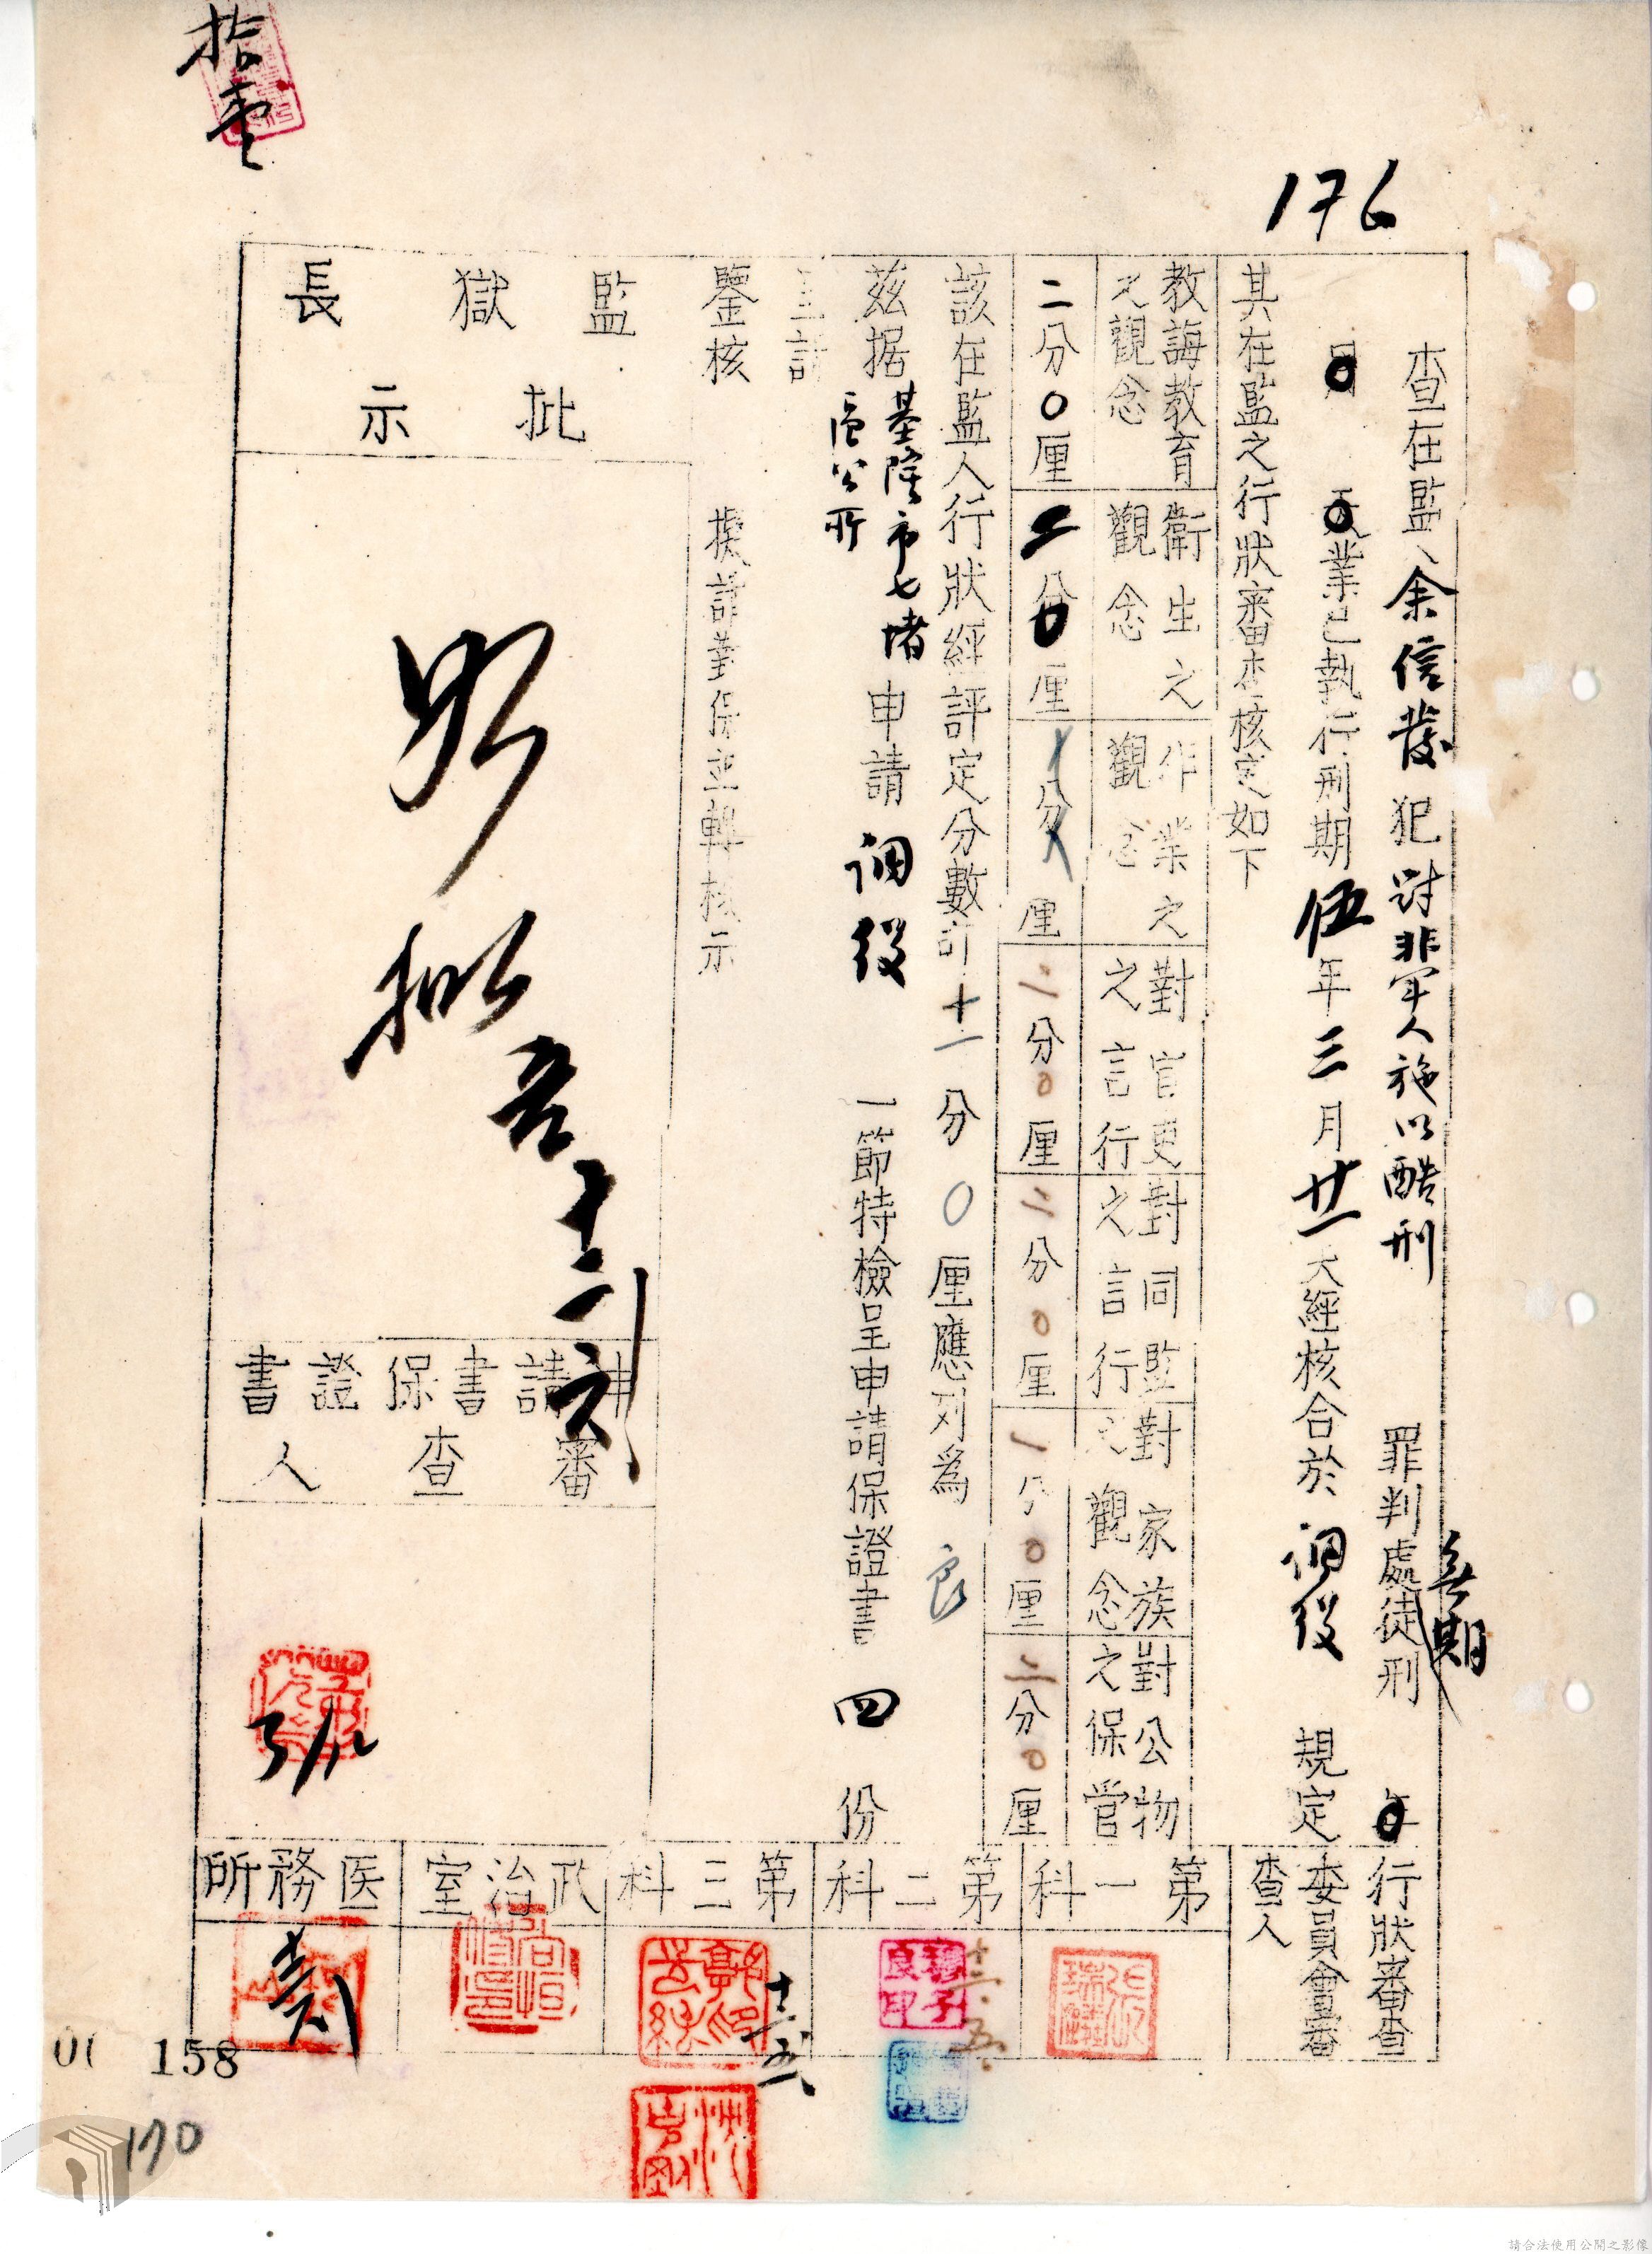 176
查在監人余信發犯對非軍人施以酷刑罪判處無期徒刑0年
0月0天業已執行刑期伍年三月廿一天經核合於調役規定
其在監之行狀審查核定如下
行狀審查
委員會審
查人
教誨教育
之觀念
衛生之
觀念
作業之
觀念
對官吏
之言行
對同監
之言行
對家族
之觀念
對公物
之保管
二分0厘
二分0厘
分厘
二分0厘
二分0厘
一分0厘
二分0厘
該在監人行狀經評定分數計十一分0厘應列為良
茲据基隆市七堵
區公所申請調役一節特檢呈申請保證書四份
鑒核
擬請對保並轉核示
監獄長
批示
如擬
十二
申請書保證書
審查人
第一科
第二科
十二.五.
第三科
十二
政治室
医務所
拾壹
01 158
170
請合法使用公開之影像